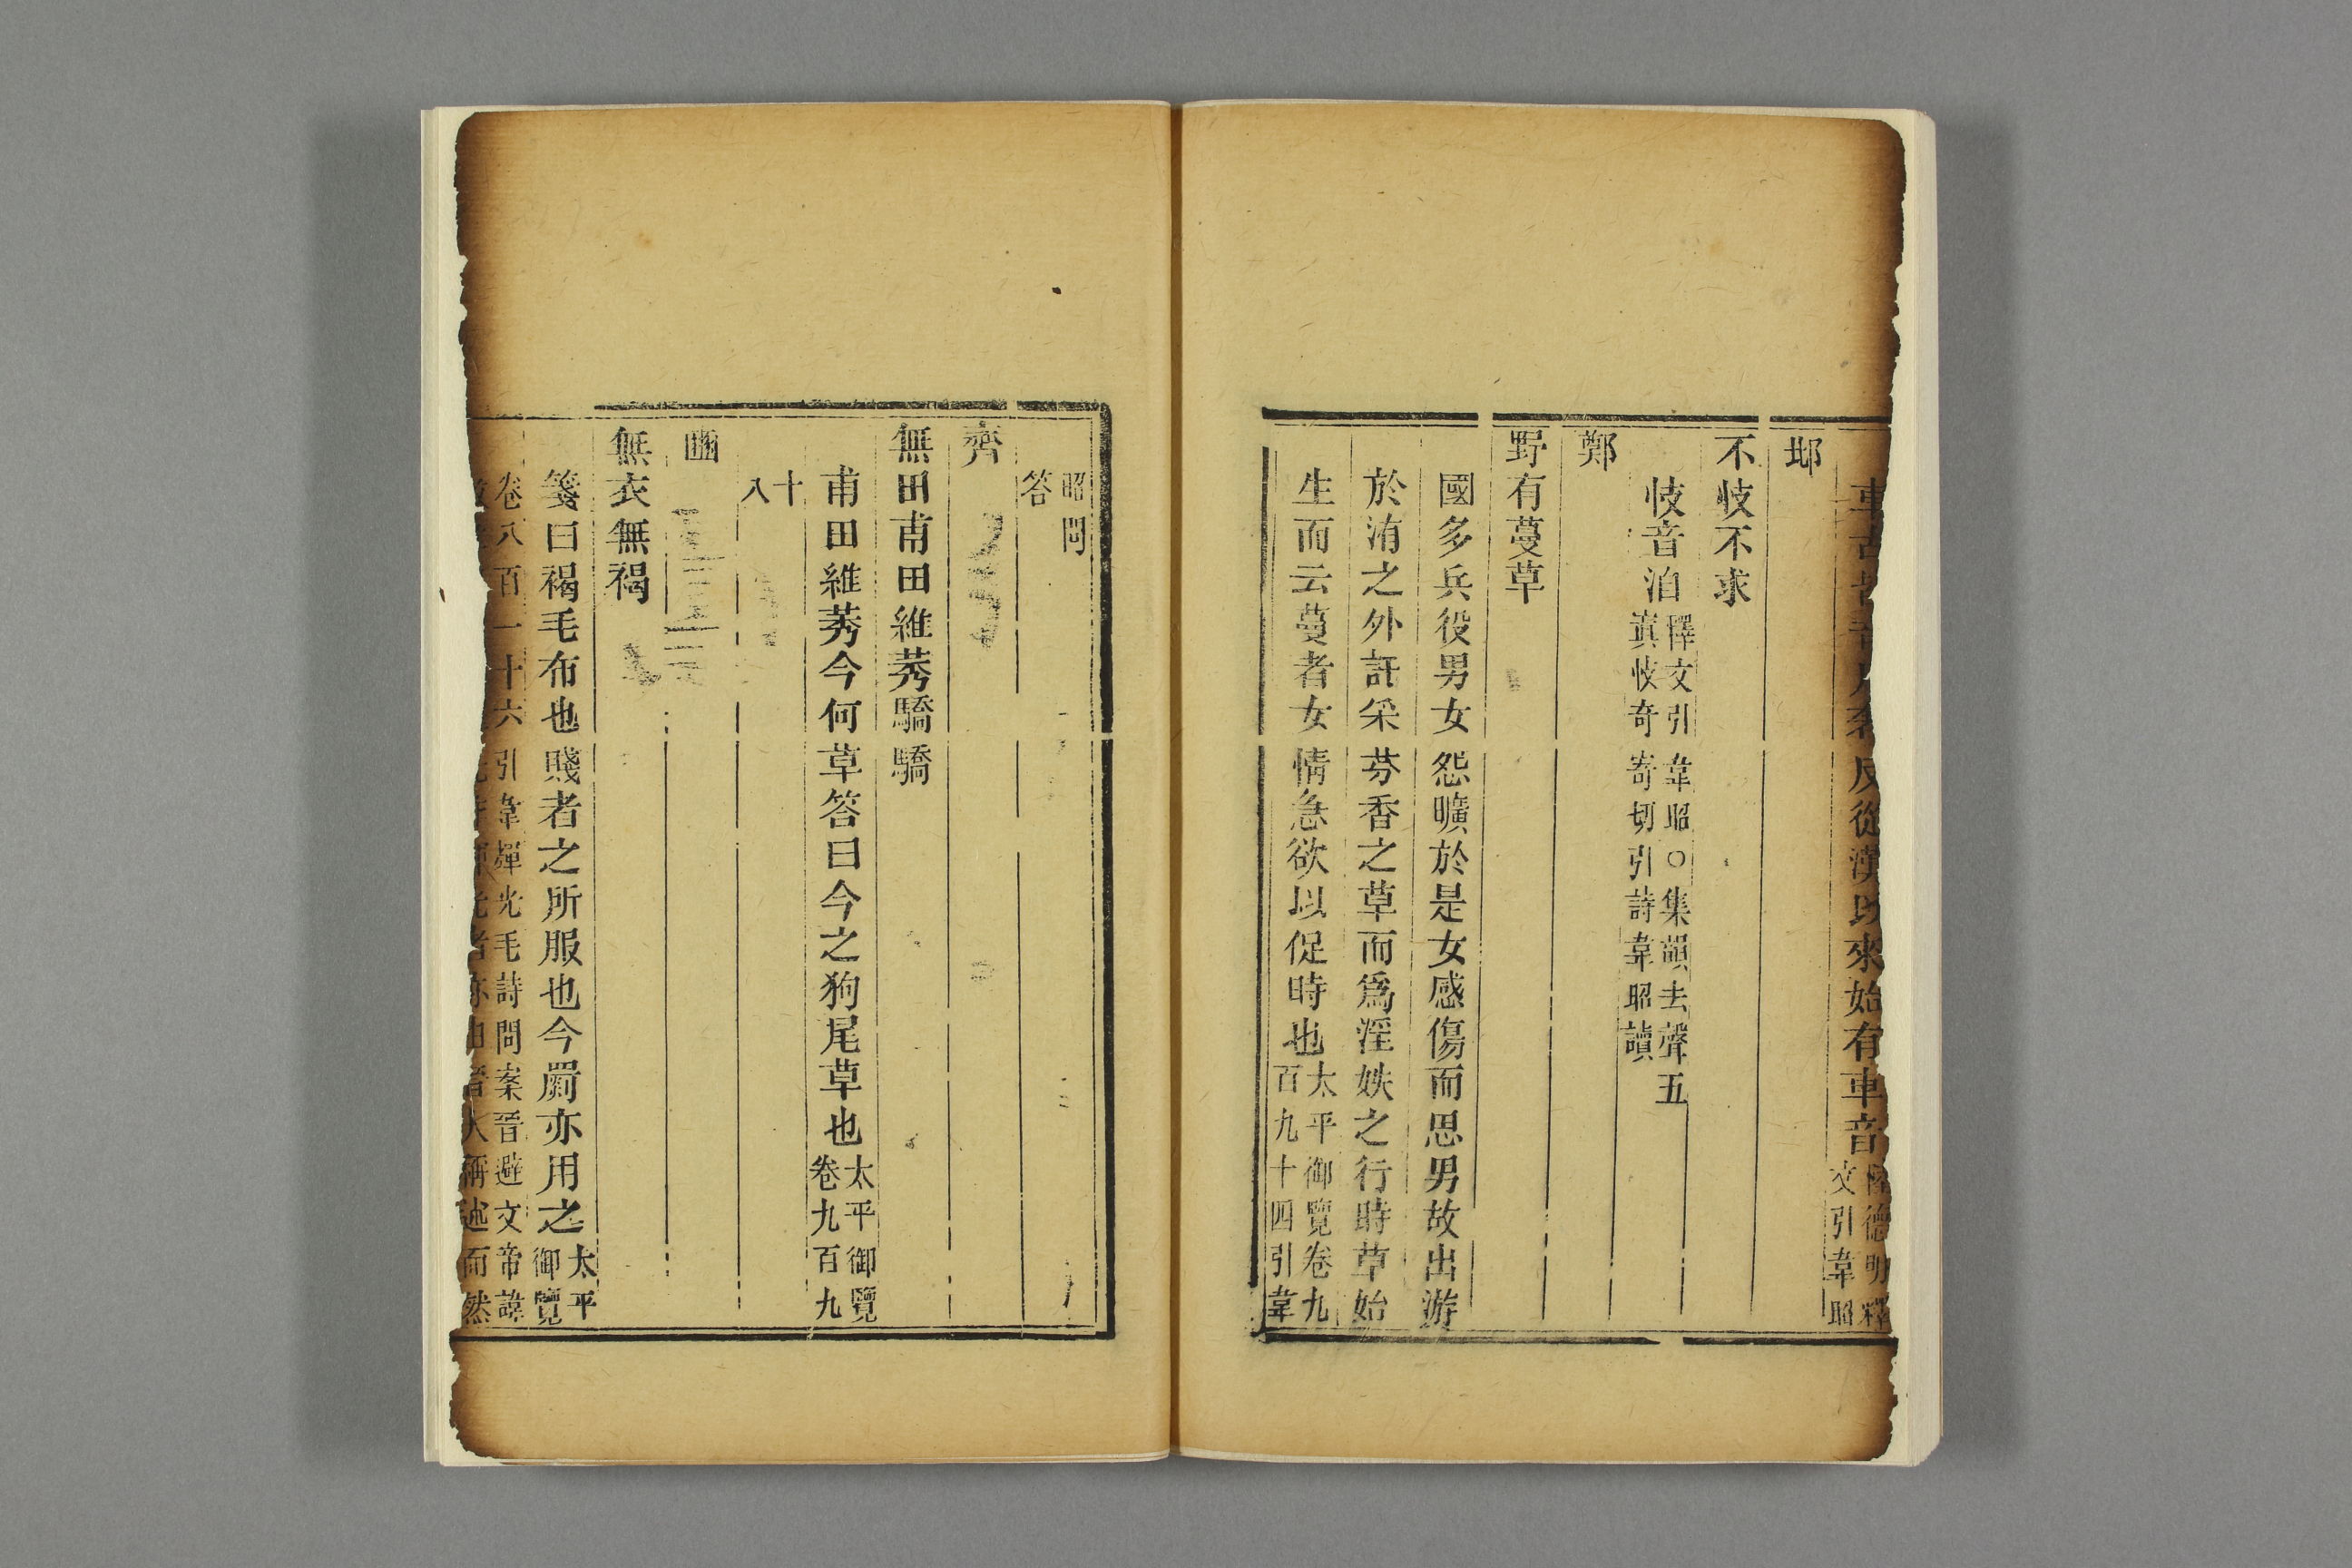 車古皆音尺奢反從漢以來始有車音陸德明釋
文引韋昭
邶
不忮不求
忮音洎釋文引韋昭○集韻去聲五
寘忮奇寄切引詩韋昭讀
鄭
野有蔓草
國多兵役男女怨曠於是女感傷而思男故出游
於洧之外託采芬香之草而爲淫妷之行時草始
生而云蔓者女情急欲以促時也太平御覽卷九
百九十四引韋
昭問
答
齊
無田甫田維莠驕驕
甫田維莠今何草答曰今之狗尾草也太平御覽
卷九百九
十
八
豳
無衣無褐
箋曰褐毛布也賤者之所服也今罽亦用之太平
御覽
卷八百一十六引韋煇光毛詩問案晉避文帝諱
稱述而然